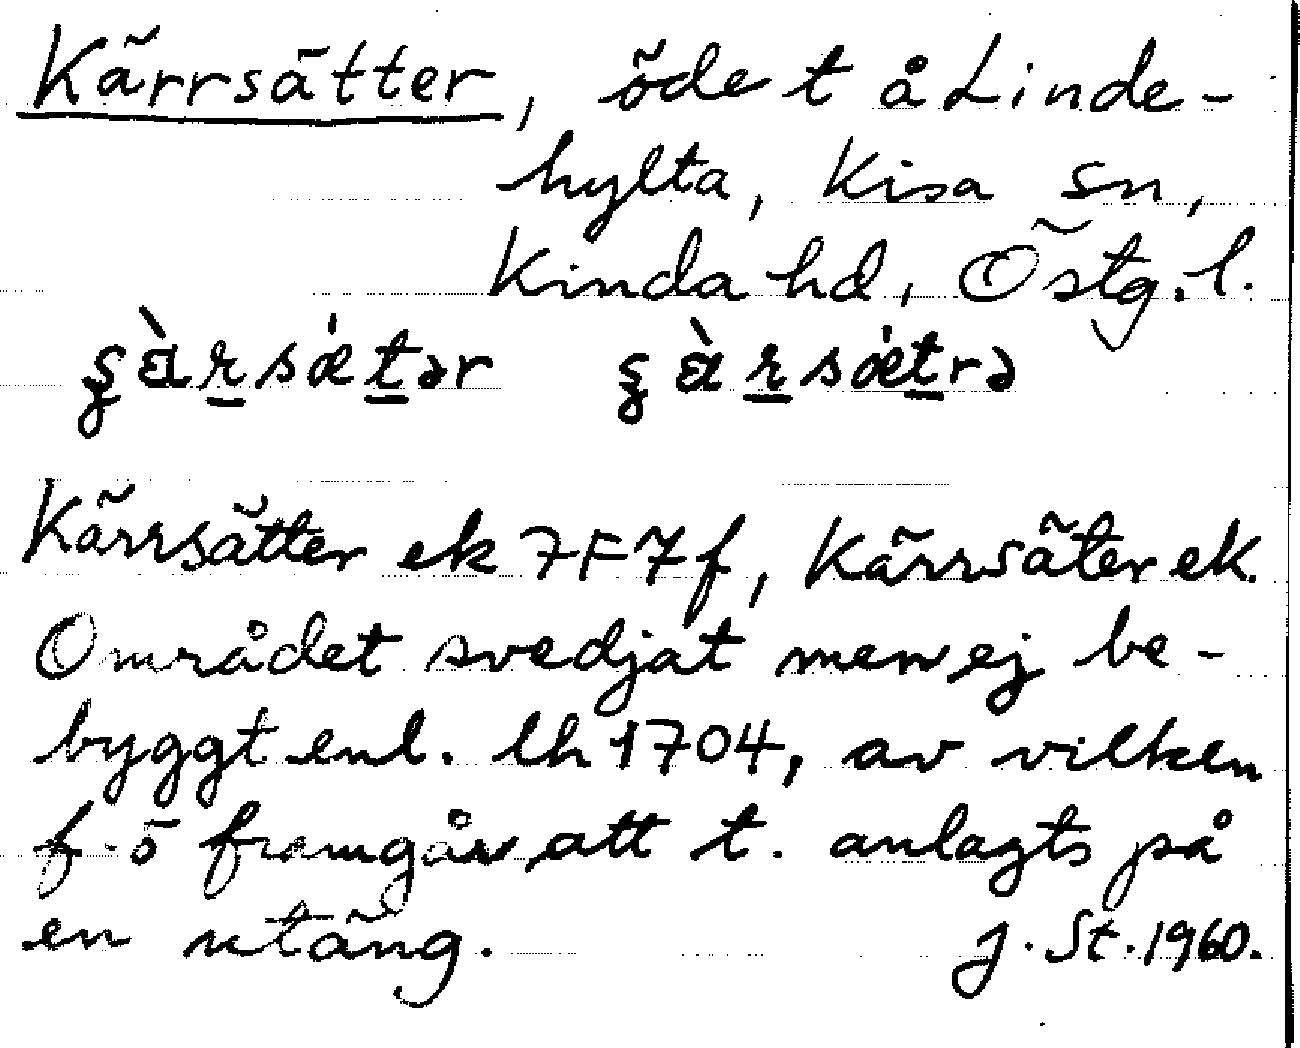 Kärrsätter, öde t å Linde-
hylta, Kisa sn,
Kinda hd, Östg.l.
Kärrsätter ek 7F7f, Kärrsäter ek.
Området svedjat men ej be-
byggt enl. lh 1704, av vilken
f.ö framgår, att t. anlagts på
en utäng. J. St. 1960.